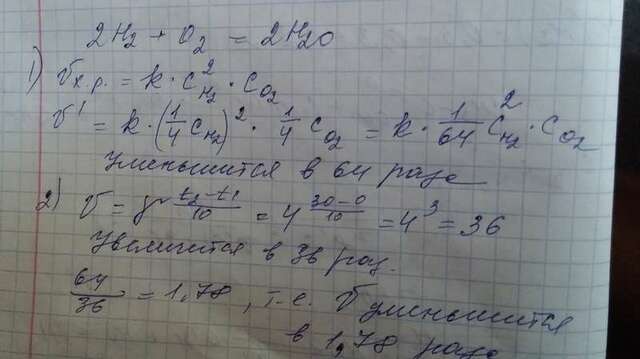 2H₂ + O₂ = 2H₂O
1) υх.р. = k · C²H₂ · CO₂
υ' = k · (1/4 CH₂)² · 1/4 CO₂ = k · 1/64 C²H₂ · CO₂
уменьшится в 64 раза
2) υ = γ^((t₂-t₁)/10) = 4^((30-0)/10) = 4³ = 36
увеличится в 36 раз.
64/36 = 1,78, т-е. υ уменьшится
в 1,78 раза